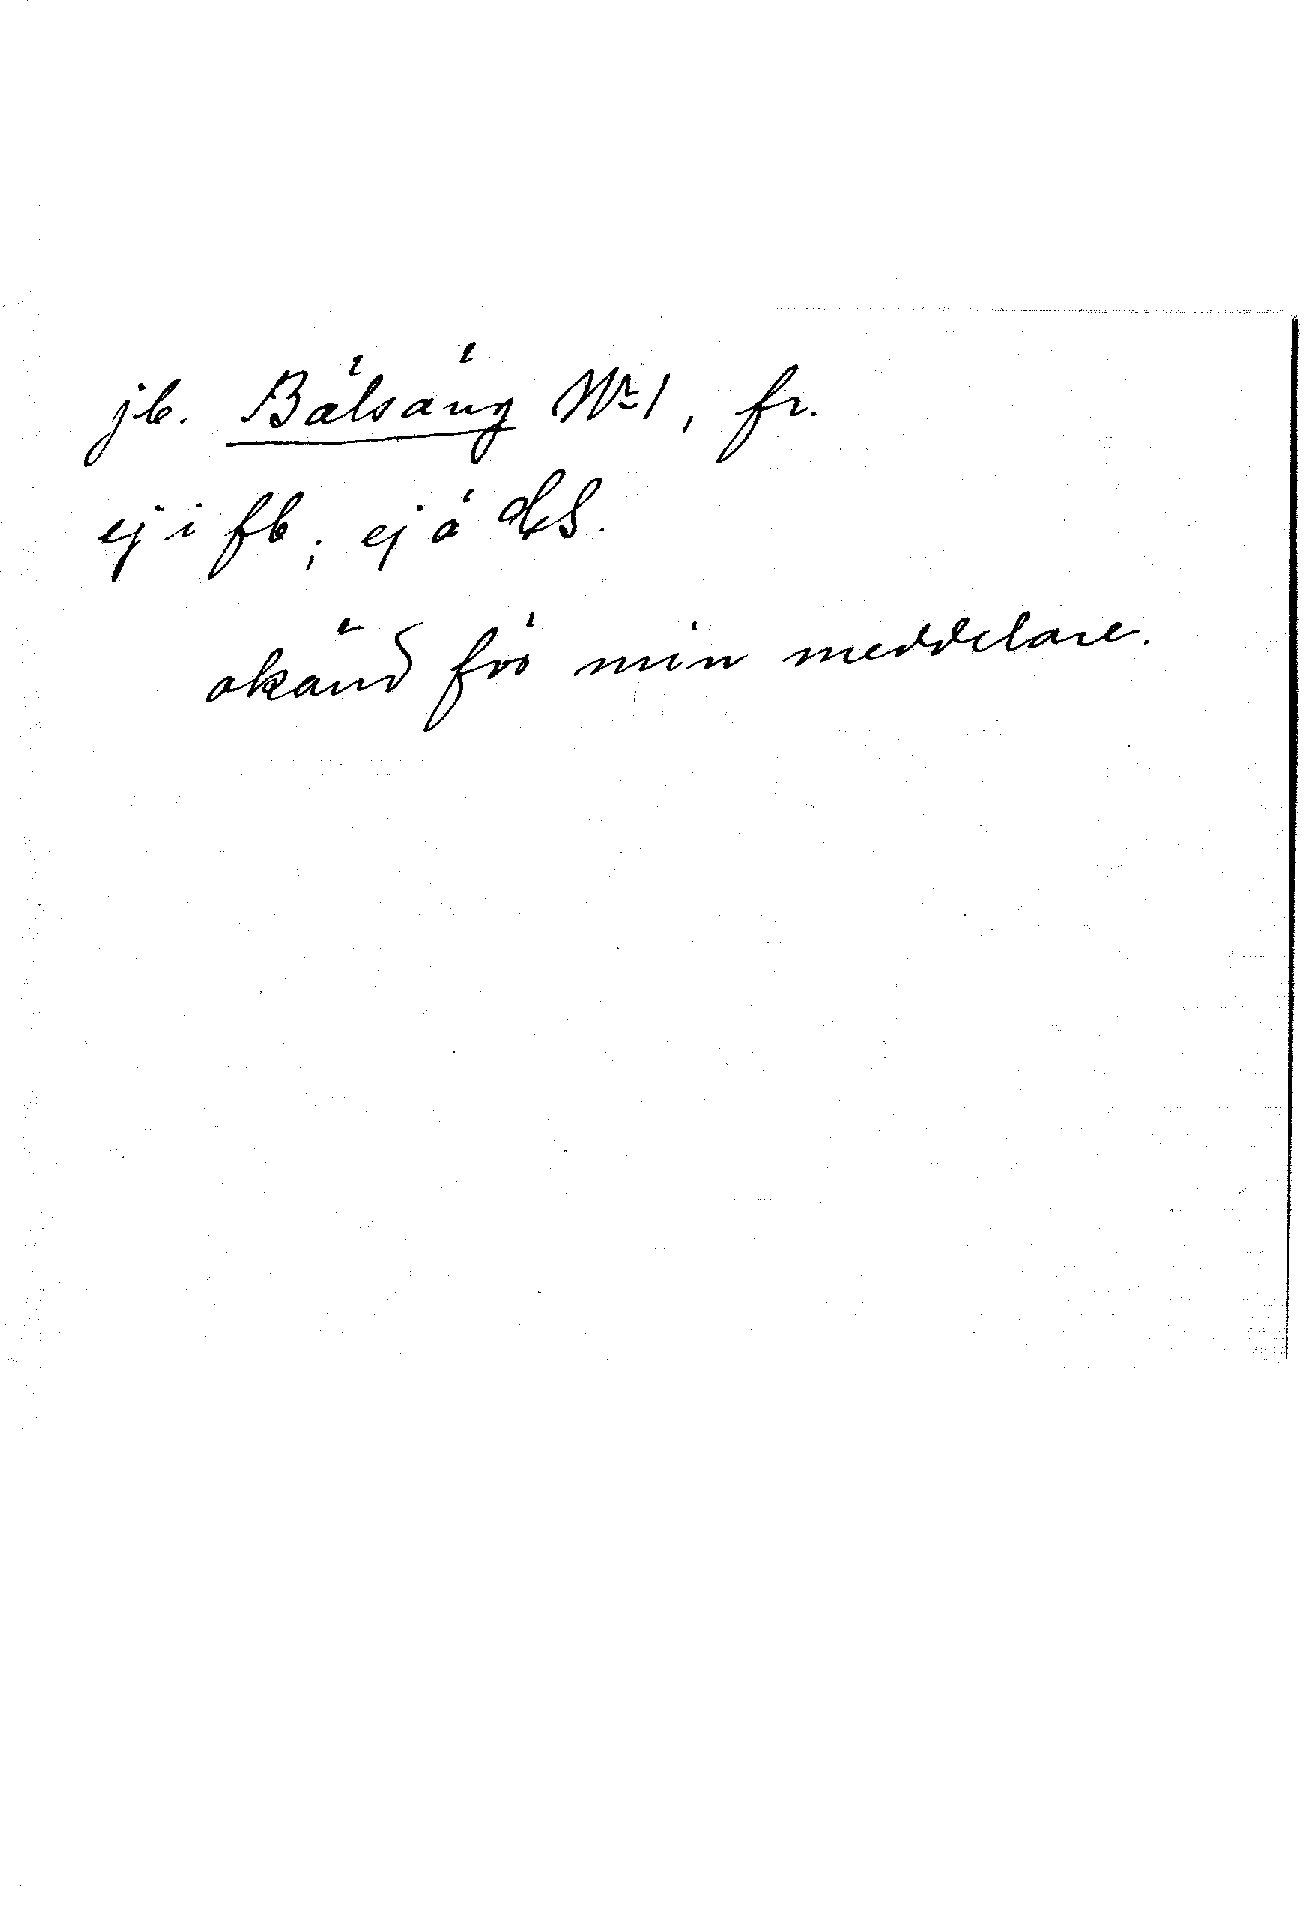 jb. Bälsäng № 1, fr.
ej i fb; ej å dS.
okänd för min meddelare.